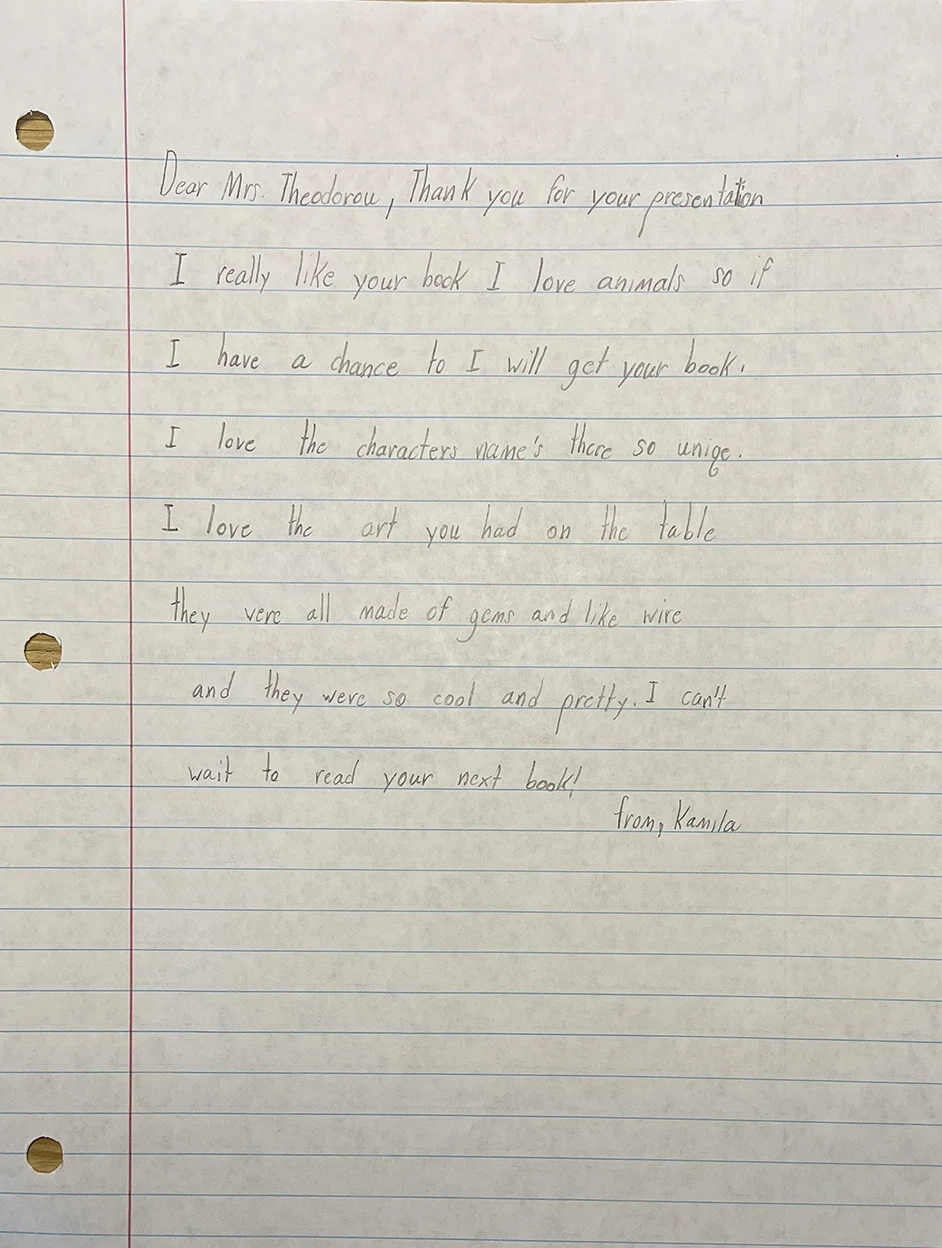 Dear Mrs. Theodorou, Thank you for your presentation
I really like your book I love animals so if
I have a chance to I will get your book.
I love the characters name's there so uniqe.
I love the art you had on the table
they were all made of gems and like wire
and they were so cool and pretty. I can't
wait to read your next book!
from, Kamila